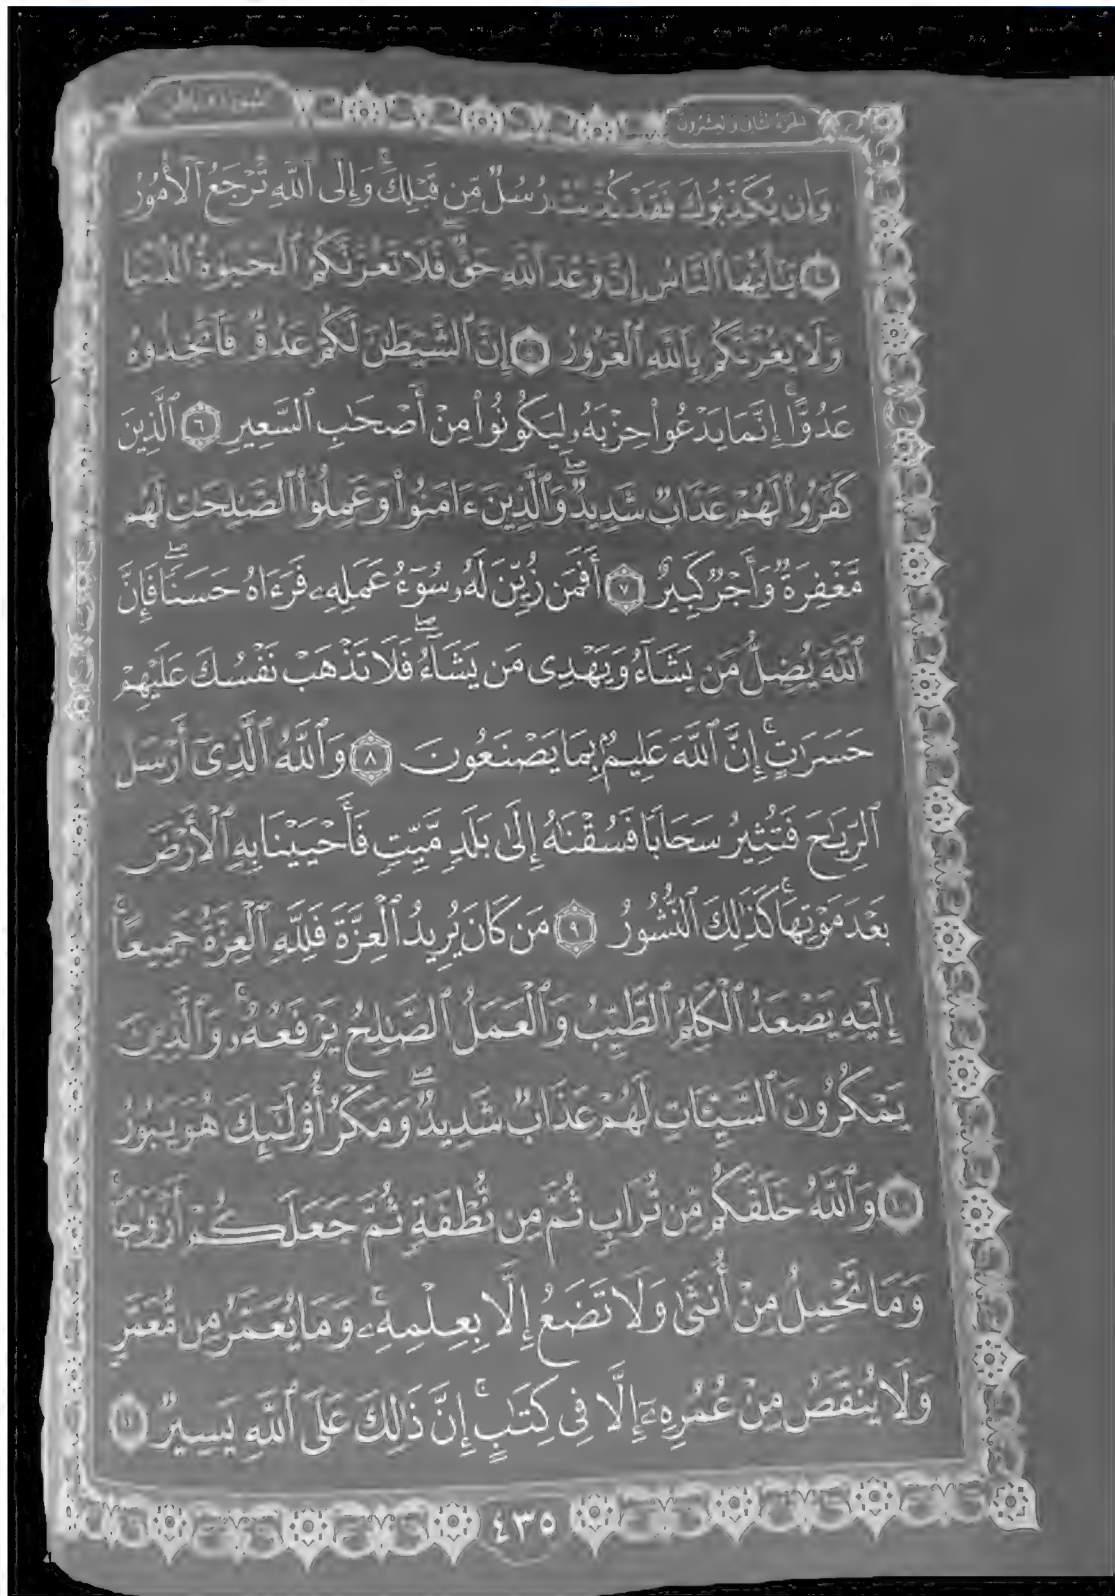 سُورَةُ فَاطِرٍ
الجُزْءُ الثَّانِي وَالعِشْرُونَ
وَإِن يُكَذِّبُوكَ فَقَدْ كُذِّبَتْ رُسُلٌ مِّن قَبْلِكَ ۚ وَإِلَى ٱللَّهِ تُرْجَعُ ٱلْأُمُورُ
٤ يَـٰٓأَيُّهَا ٱلنَّاسُ إِنَّ وَعْدَ ٱللَّهِ حَقٌّ ۖ فَلَا تَغُرَّنَّكُمُ ٱلْحَيَوٰةُ ٱلدُّنْيَا
وَلَا يَغُرَّنَّكُم بِٱللَّهِ ٱلْغَرُورُ ٥ إِنَّ ٱلشَّيْطَـٰنَ لَكُمْ عَدُوٌّ فَٱتَّخِذُوهُ
عَدُوًّا ۚ إِنَّمَا يَدْعُوا۟ حِزْبَهُۥ لِيَكُونُوا۟ مِنْ أَصْحَـٰبِ ٱلسَّعِيرِ ٦ ٱلَّذِينَ
كَفَرُوا۟ لَهُمْ عَذَابٌ شَدِيدٌ ۖ وَٱلَّذِينَ ءَامَنُوا۟ وَعَمِلُوا۟ ٱلصَّـٰلِحَـٰتِ لَهُم
مَّغْفِرَةٌ وَأَجْرٌ كَبِيرٌ ٧ أَفَمَن زُيِّنَ لَهُۥ سُوٓءُ عَمَلِهِۦ فَرَءَاهُ حَسَنًا ۖ فَإِنَّ
ٱللَّهَ يُضِلُّ مَن يَشَآءُ وَيَهْدِى مَن يَشَآءُ ۖ فَلَا تَذْهَبْ نَفْسُكَ عَلَيْهِمْ
حَسَرَٰتٍ ۚ إِنَّ ٱللَّهَ عَلِيمٌۢ بِمَا يَصْنَعُونَ ٨ وَٱللَّهُ ٱلَّذِىٓ أَرْسَلَ
ٱلرِّيَـٰحَ فَتُثِيرُ سَحَابًا فَسُقْنَـٰهُ إِلَىٰ بَلَدٍ مَّيِّتٍ فَأَحْيَيْنَا بِهِ ٱلْأَرْضَ
بَعْدَ مَوْتِهَا ۚ كَذَٰلِكَ ٱلنُّشُورُ ٩ مَن كَانَ يُرِيدُ ٱلْعِزَّةَ فَلِلَّهِ ٱلْعِزَّةُ جَمِيعًا ۚ
إِلَيْهِ يَصْعَدُ ٱلْكَلِمُ ٱلطَّيِّبُ وَٱلْعَمَلُ ٱلصَّـٰلِحُ يَرْفَعُهُۥ ۚ وَٱلَّذِينَ
يَمْكُرُونَ ٱلسَّيِّـَٔاتِ لَهُمْ عَذَابٌ شَدِيدٌ ۖ وَمَكْرُ أُو۟لَـٰٓئِكَ هُوَ يَبُورُ
١٠ وَٱللَّهُ خَلَقَكُم مِّن تُرَابٍ ثُمَّ مِن نُّطْفَةٍ ثُمَّ جَعَلَكُمْ أَزْوَٰجًا ۚ
وَمَا تَحْمِلُ مِنْ أُنثَىٰ وَلَا تَضَعُ إِلَّا بِعِلْمِهِۦ ۚ وَمَا يُعَمَّرُ مِن مُّعَمَّرٍ
وَلَا يُنقَصُ مِنْ عُمُرِهِۦٓ إِلَّا فِى كِتَـٰبٍ ۚ إِنَّ ذَٰلِكَ عَلَى ٱللَّهِ يَسِيرٌ ١١
٤٣٥